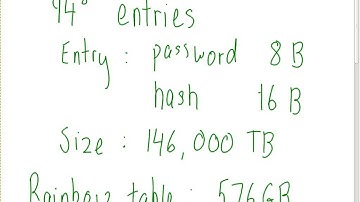 94⁸ entries
Entry : password 8 B
hash 16 B
Size : 146,000 TB
Rainbow table : 576 GB